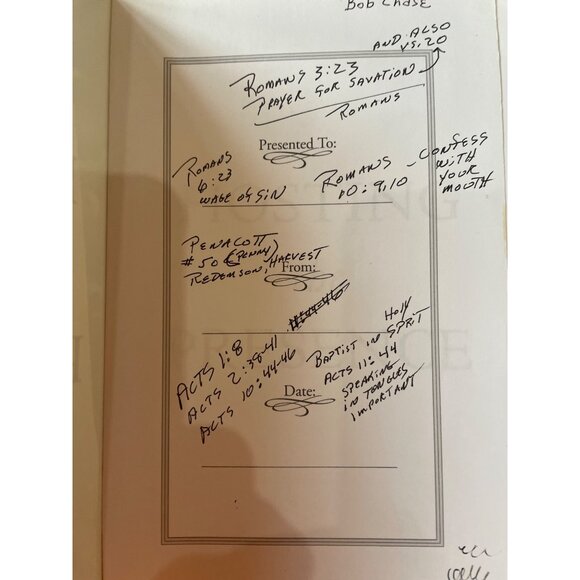 Bob Chase
AND ALSO
VS. 20
ROMANS 3:23
PRAYER FOR SAVATION
ROMANS
Presented To:
ROMANS
6:23
WAGE OF SIN
ROMANS
10:9,10
- CONFESS
WITH
YOUR
MOUTH
PENACOTT
#50 (PENNY)
REDEMSON, HARVEST
From:
ACTS 1:8
ACTS 2:38-41
ACTS 10:44-46
BAPTIST IN HOLY
SPRIT
ACTS 11:44
SPEAKING
IN TONGUES
IMPORTANT
Date: